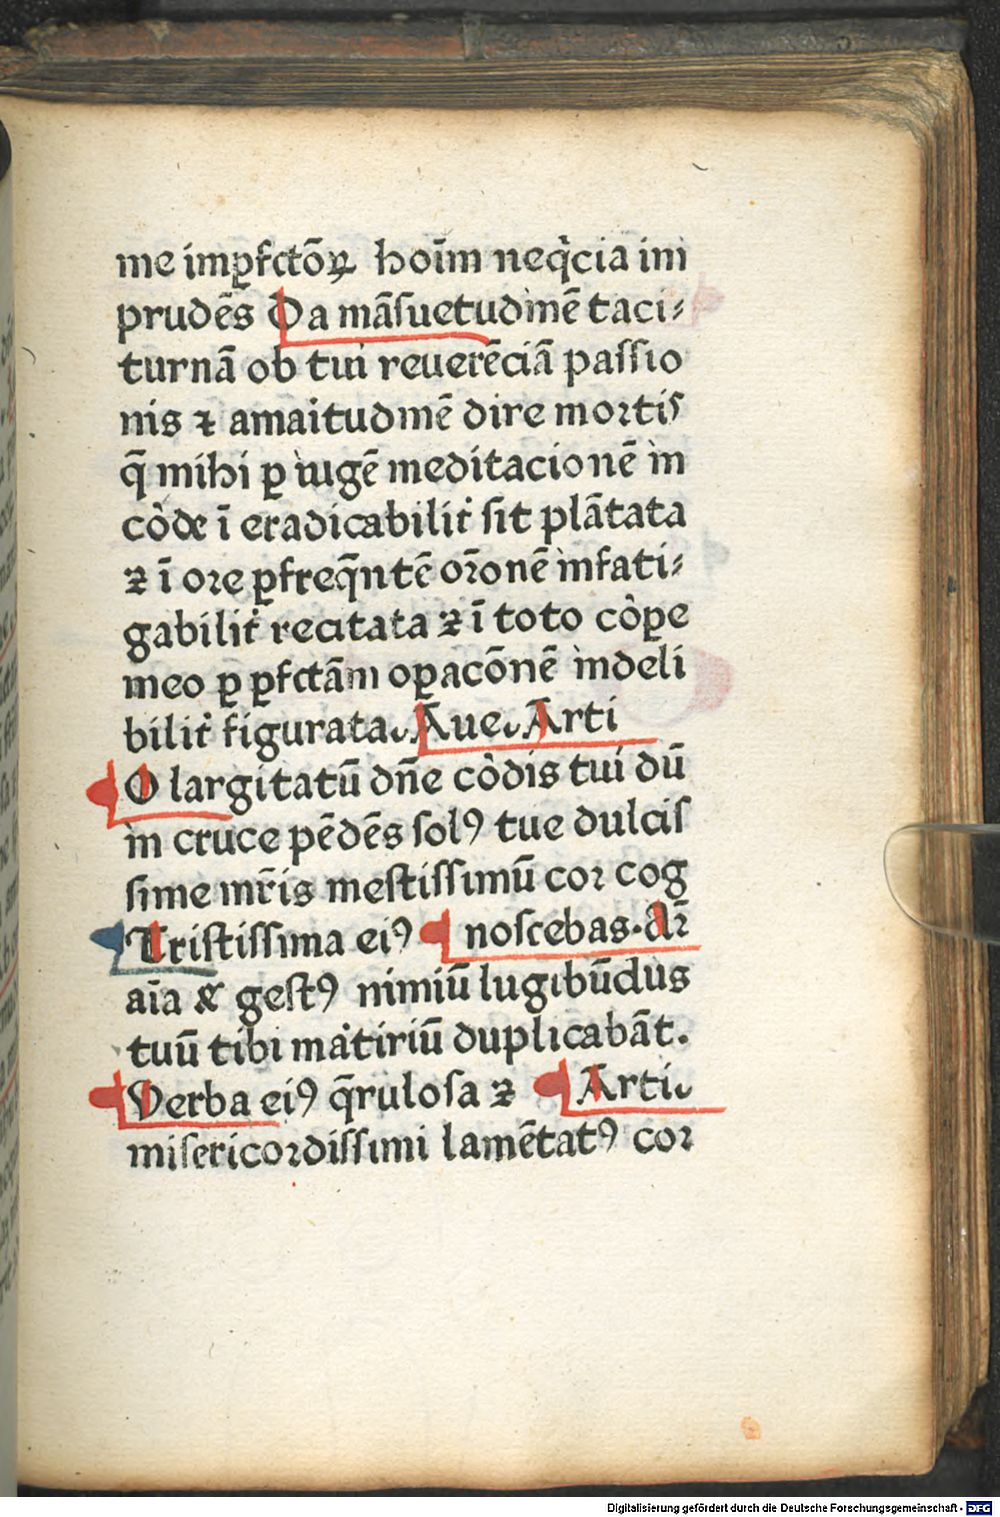 me imꝑfctōꝝ hoīm neqͥcia im
prudēs Da māſuetudinē taci⸗
turnā ob tui reuerēciā paſſio
nis ⁊ amaritudinē dire moꝛtiſ
q̄ mihi ꝑ iugē meditacionē in
coꝛde ī eradicabilit̉ ſit plātata
⁊ ī oꝛe ꝑfreq̄ntē oꝛ̄onē infati⸗
gabilit̉ recitata ⁊ ī toto coꝛꝑe
meo ꝑ ꝑfctām oꝑacōnē indeli
bilit̉ figurata. Aue. Arti
O largitatū dn̄e coꝛdis tui dū
in cruce pēdēs ſolꝰ tue dulciſ
ſime mr̄is meſtiſſimū coꝛ cog
Triſtiſſima eiꝰ noſcebas. Ar̄
aīa & geſtꝰ nimiū lugibūdus
tuū tibi martiriū duplicabāt.
Verba eiꝰ q̄ruloſa ⁊ Arti.
miſericoꝛdiſſimi lamētatꝰ coꝛ
Digitalisierung gefördert durch die Deutsche Forschungsgemeinschaft - DFG